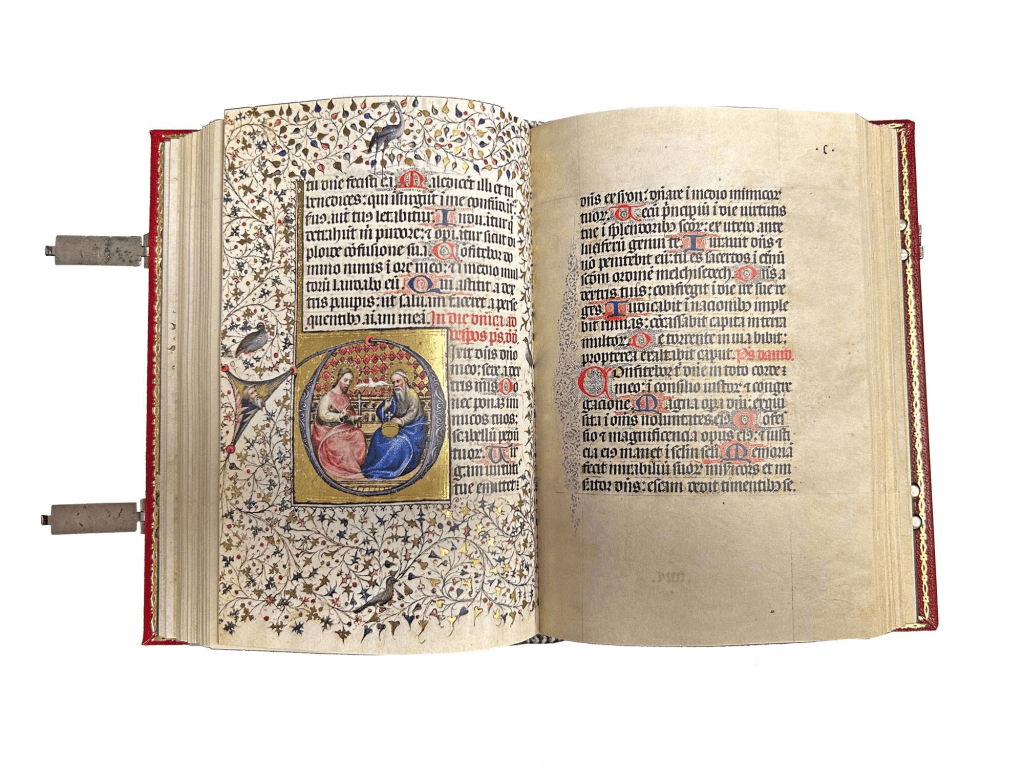 tu dñe fecisti eã Maledicet illi et tu
benedices: qui isurgũt ĩ me confũdãt᷑
suꝰ aut̃ tuꝰ letabitur Iduãtur
detrahũt m̃ pudore: ⁊ opiãtur sicut di
ploide cõfusione sua Confitebor do
mino nimis ĩ ore meo: ⁊ ĩ medio mul
torũ laudabo eũ Qui astitit a dex
tris paupis: ut saluam faceret a perse
quentibꝰ aĩam mea In die dñica ad
vespos ps. dd.
Dixit dñs dño
meo: sede a dex
tris meis Do
nec ponam ini
micos tuos:
scabellũ pedũ
tuoꝝ Uir
gam uirtutis
tue emittet
.c.
dñs ex syon: dñare ĩ medio inimicoꝝ
tuoꝝ Tecũ pͥncipiũ ĩ die uirtutis
tue ĩ splendoribꝰ scõꝝ: ex utero ante
luciferũ genui te Iurauit dñs ⁊
nõ penitebit eũ: tu es sacerdos ĩ et̃nũ
scdm ordinẽ melchisedech Dñs a
dextris tuis: confregit ĩ die ire sue re
ges Iudicabit ĩ nacionibꝰ imple
bit ruinas: cõquassabit capita in terra
multoꝝ De torrente in uia bibet:
propterea exaltabit caput Ps dauid
Confitebor t̃ dñe in toto corde
meo: ĩ consilio iustoꝝ ⁊ congre
gacione Magna opa dñi: exqui
sita ĩ om̃s uoluntates eiꝰ Cõfes
sio ⁊ magnificencia opus eiꝰ: ⁊ iusti
cia eiꝰ manet ĩ sclm scli Memoriã
fecit mirabiliũ suoꝝ misicors et mi
sator dñs: escam dedit timentibꝰ se.